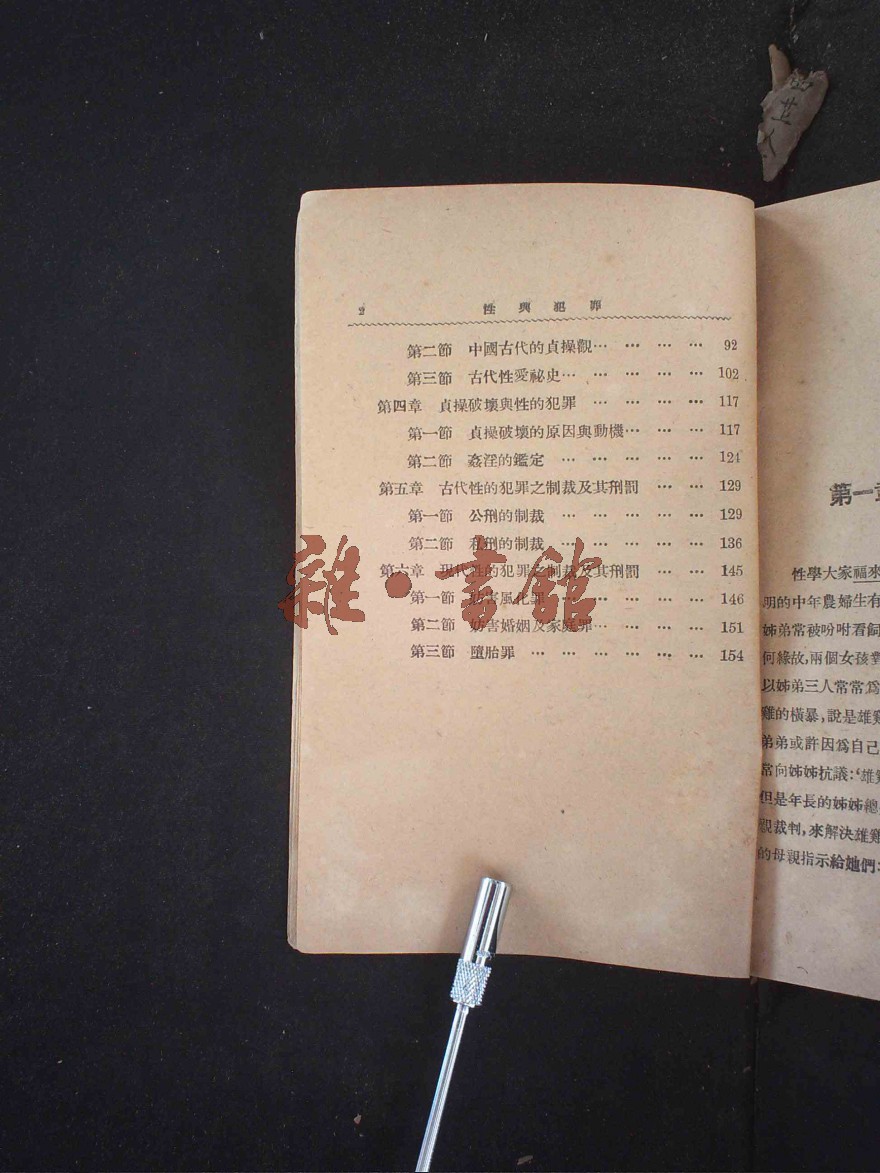 2 性與犯罪
第二節 中國古代的貞操觀… … … … 92
第三節 古代性愛祕史… … … … … 102
第四章 貞操破壞與性的犯罪 … … … … 117
第一節 貞操破壞的原因與動機… … … 117
第二節 姦淫的鑑定 … … … … … 124
第五章 古代性的犯罪之制裁及其刑罰 … … 129
第一節 公刑的制裁 … … … … … 129
第二節 私刑的制裁 … … … … … 136
第六章 現代性的犯罪之制裁及其刑罰 … … 145
第一節 妨害風化罪 … … … … … 146
第二節 妨害婚姻及家庭罪… … … … 151
第三節 墮胎罪 … … … … … … 154
雜·書館
第一章
性學大家福來
明的中年農婦生有
姊弟常被吩咐看飼
何緣故,兩個女孩對
以姊弟三人常常爲
雞的橫暴,說是雄雞
弟弟或許因爲自己
常向姊姊抗議:‘雄雞
但是年長的姊姊總
觀裁判,來解決雄雞
的母親指示給她們: